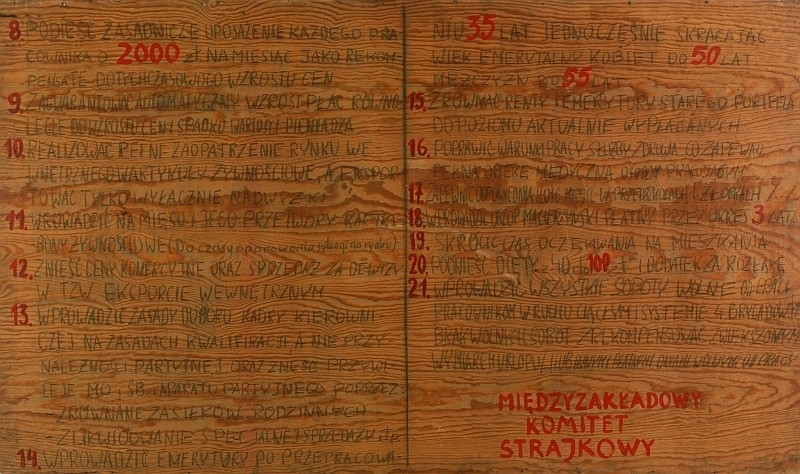 8. PODIEŚĆ ZASADNICZE UPOSAŻENIE KAŻDEGO PRA-
COWNIKA O 2000 ZŁ NA MIESIĄC JAKO REKOM-
PENSATĘ DOTYCHCZASOWEGO WZROSTU CEN.
9. ZAGWARANTOWAĆ AUTOMATYCZNY WZROST PŁAC RÓWNO-
LEGLE DO WZROSTU CEN I SPADKU WARTOŚCI PIENIĄDZA
10. REALIZOWAĆ PEŁNE ZAOPATRZENIE RYNKU WE-
WNĘTRZNEGO W ARTYKUŁY ŻYWNOŚCIOWE, A EKSPOR-
TOWAĆ TYLKO WYŁĄCZNIE NADWYŻKI
11. WROWADZIĆ NA MIĘSO I JEGO PRZETWORY KARTKI-
BONY ŻYWNOŚCIOWE (Do czasu opanowania sytuacji na rynku)
12. ZNIEŚĆ CENY KOMERCYJNE ORAZ SPRZEDAŻ ZA DEWIZY
W TZW. EKSPORCIE WEWNĘTRZNYM
13. WPROWADZIĆ ZASADY DOBORU KADRY KIEROWNI
CZEJ NA ZASADACH KWALIFIKACJI, A NIE PRZY
NALEŻNOŚCI PARTYJNEJ ORAZ ZNIEŚĆ PRZYWI-
LEJE MO, SB, APARATU PARTYJNEGO POPRZEZ:
- ZRÓWNANIE ZASIŁKÓW RODZINNYCH
- ZLIKWIDOWANIE SPECJALNEJ SPRZEDAŻY itp.
14. WPROWADZIĆ EMERYTURY PO PRZEPRACOWA-
NIU 35 LAT JEDNOCZEŚNIE SKRACAJĄC
WIEK EMERYTALNY KOBIET DO 50 LAT
MĘŻCZYZN DO 55 LAT
15. ZRÓWNAĆ RENTY I EMERYTURY STAREGO PORTFELA
DO POZIOMU AKTUALNIE WYPŁACANYCH
16. POPRAWIĆ WARUNKI PRACY SŁUŻBY ZDROWIA CO ZAPEWNI
PEŁNĄ OPIEKĘ MEDYCZNĄ OSOBOM PRACUJĄCYM
17. ZAPEWNIĆ ODPOWIEDNIĄ ILOŚĆ MIEJSC W PRZEDSZKOLACH I ŻŁOBKACH
18. WPROWADZIĆ URLOP MACIERZYŃSKI PŁATNY PRZEZ OKRES 3 LAT
19. SKRÓCIĆ CZAS OCZEKIWANIA NA MIESZKANIA
20. PODNIEŚĆ DIETY Z 40 do 100 ZŁ I DODATEK ZA ROZŁĄKĘ
21. WPROWADZIĆ WSZYSTKIE SOBOTY WOLNE OD PRACY
PRACOWNIKOM W RUCHU CIĄGŁYM I SYSTEMIE 4 BRYGADOWYM
BRAK WOLNYCH SOBÓT ZREKOMPENSOWAĆ ZWIĘKSZONYM
WYMIAREM URLOPU LUB INNYMI PŁATNYMI DNIAMI WOLNYMI OD PRACY
MIĘDZYZAKŁADOWY
KOMITET
STRAJKOWY